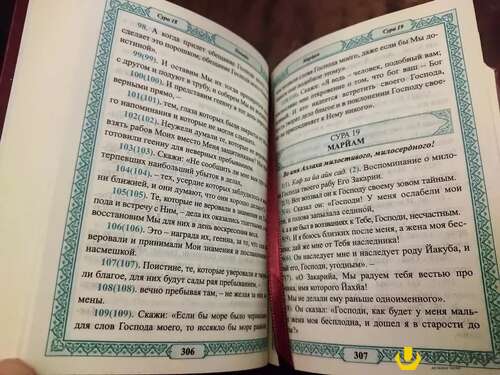 Сура 18
98. А когда придет обещание Господа
сделает это порошком; обещание Господа
истиной».
99(99). И оставим Мы их тогда
с другом и подуют в трубу, и соберем Мы их
100(100). И представим геенну в тот день
верными прямо,
101(101). тем, глаза которых были закрыты
напоминания и которые не могли
102(102). Неужели думали те, которые не
взять рабов Моих вместо Меня защитниками?
готовили геенну для неверных пребыванием!
103(103). Скажи: «Не сообщить ли мне вам
терпевших наибольший убыток в делах,
104(104). – тех, усердие которых заблудилось в
ни ближней, и они думают, что они хорошо делают?
105(105). Те, которые не веровали в знамения
пода и встречу с Ним, – дела их оказались
восстановим Мы для них в день воскресения
106(106). Это – награда их, геенна, за то, что
веровали и принимали Мои знамения и
насмешкой.
107(107). Поистине, те, которые уверовали и
ли благое, для них будут сады рая пребыванием, –
108(108). вечно пребывая там, – не желая за них
мены.
109(109). Скажи: «Если бы море было чернилами
для слов Господа моего, то иссякло бы море раньше,
306
Сура 19
Марйам
слова Господа моего, даже если бы Мы до-
этому».
Скажи: «Я ведь – человек, подобный вам;
мне откровение о том, что Бог ваш – Бог
И кто надеется встретить своего Господа,
творит дело благое и в поклонении Господу своему
присоединяет к Нему никого».
СУРА 19
МАРЙАМ
Во имя Аллаха милостивого, милосердного!
1(1). Каф ха йа айн сад. (2). Воспоминание о мило-
Господа твоего рабу Его Закарии.
Вот воззвал он к Господу своему зовом тайным.
Сказал он: «Господи! У меня ослабели мои
и голова запылала сединой,
а я не был в воззваниях к Тебе, Господи, несчастным.
И я боюсь близких после меня, а жена моя бес-
дай же мне от Тебя наследника!
Он наследует мне и наследует роду Йакуба, и
его, Господи, угодным». –
«О Закарийа, Мы радуем тебя вестью про
имя которого Йахйа!
Мы не делали ему раньше одноименного».
Он сказал: «Господи, как будет у меня маль-
жена моя бесплодна, и дошел я в старости до
307